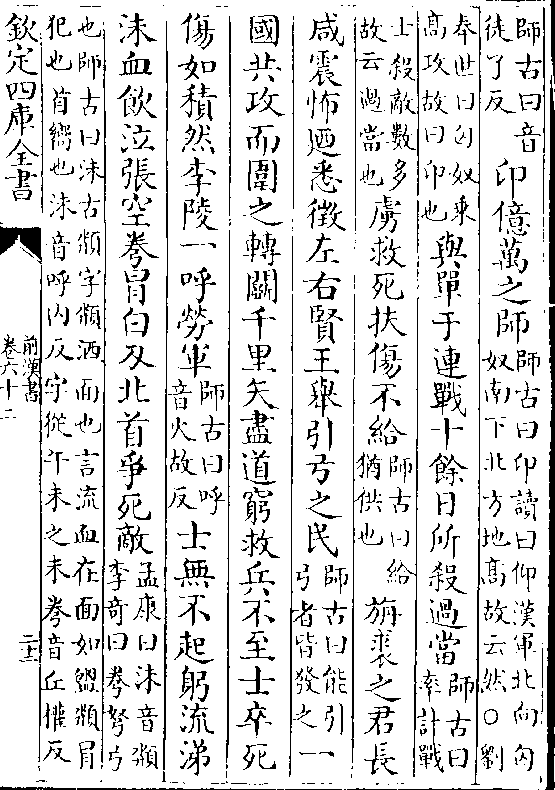 師古曰音徒了反印億萬之師師古曰印讀曰仰漢軍北向匈奴南下北方地髙故云然○劉
奉世曰匈奴乘髙攻故曰印也與單于連戰十餘日所殺過當師古曰率計戰
士殺敵數多故云過當也虜救死扶傷不給師古曰給猶供也旃裘之君長
咸震怖廼悉徵左右賢王舉引弓之民師古曰能引弓者皆發之一
國共攻而圍之轉鬭千里矢盡道窮救兵不至士卒死
傷如積然李陵一呼勞軍師古曰呼音火故反士無不起躬流涕
沬血飲泣張空弮冒白刃北首爭死敵孟康曰沬音頮李奇曰弮弩弓
也師古曰沬古頮字頮洒面也言流血在面如盥頮冒犯也首嚮也沬音呼内反字從午未之未弮音丘權反
欽定四庫全書
前漢書
卷六十二
二十三